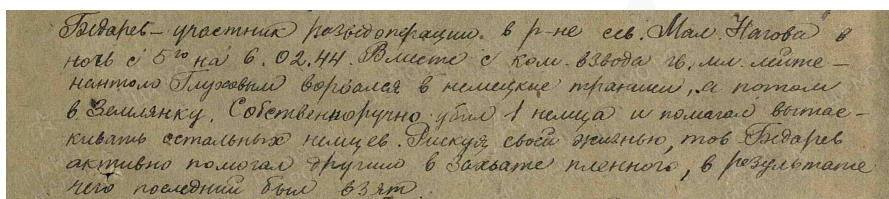 Бедарев – участник разведоперации в р-не сев. Мал. Нагова в
ночь с 5го на 6.02.44. Вместе с ком. взвода гв. мл. лейте-
нантом Глуховым ворвался в немецкие траншеи, а потом
в землянку. Собственноручно убил 1 немца и помогал вытас-
кивать остальных немцев. Рискуя своей жизнью, тов Бедарев
активно помогал другим в захвате пленного, в результате
чего последний был взят.